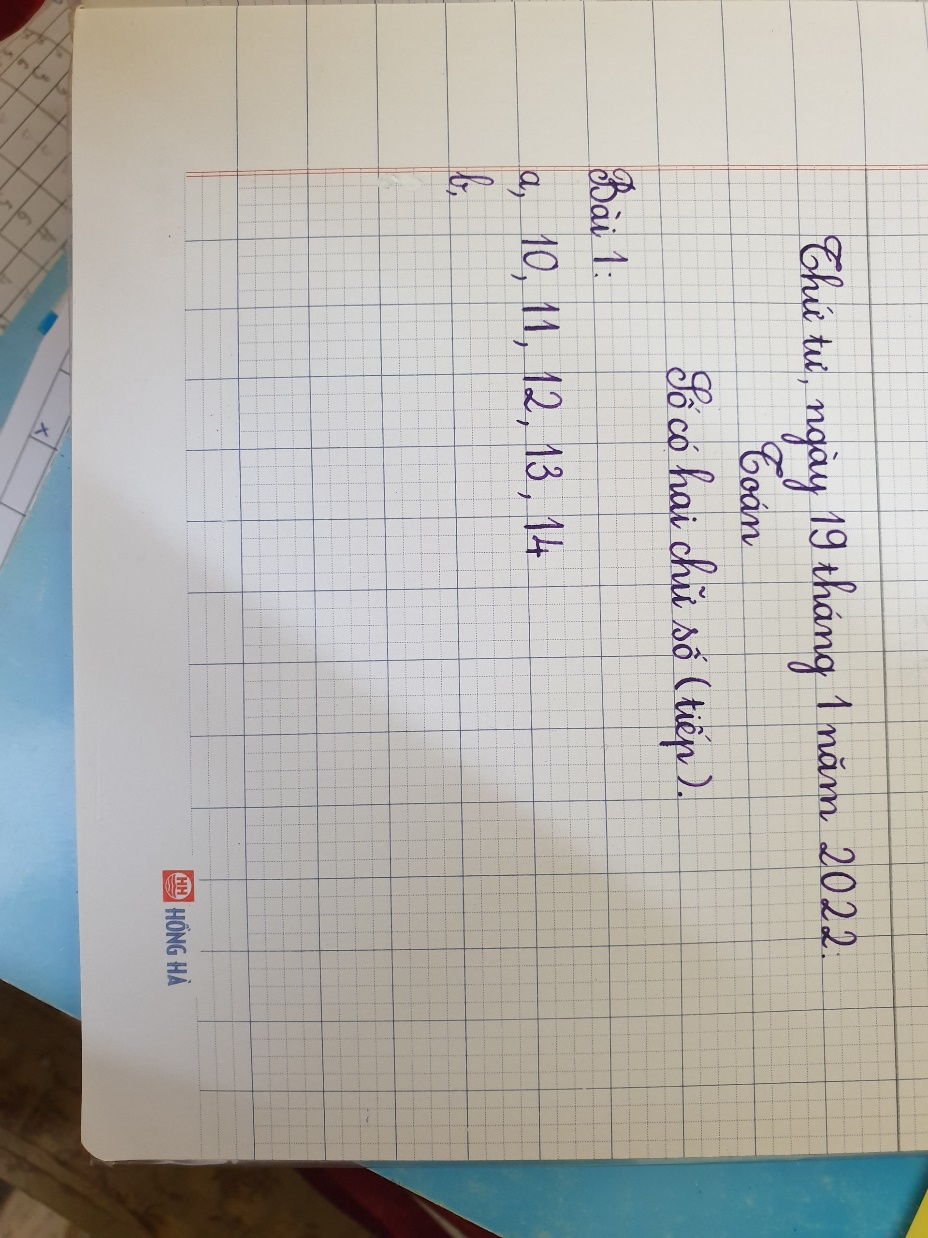 Thứ tư, ngày 19 tháng 1 năm 2022.
Toán
Số có hai chữ số (tiếp).
Bài 1:
a, 10, 11, 12, 13, 14
b,
HH
HỒNG HÀ
x